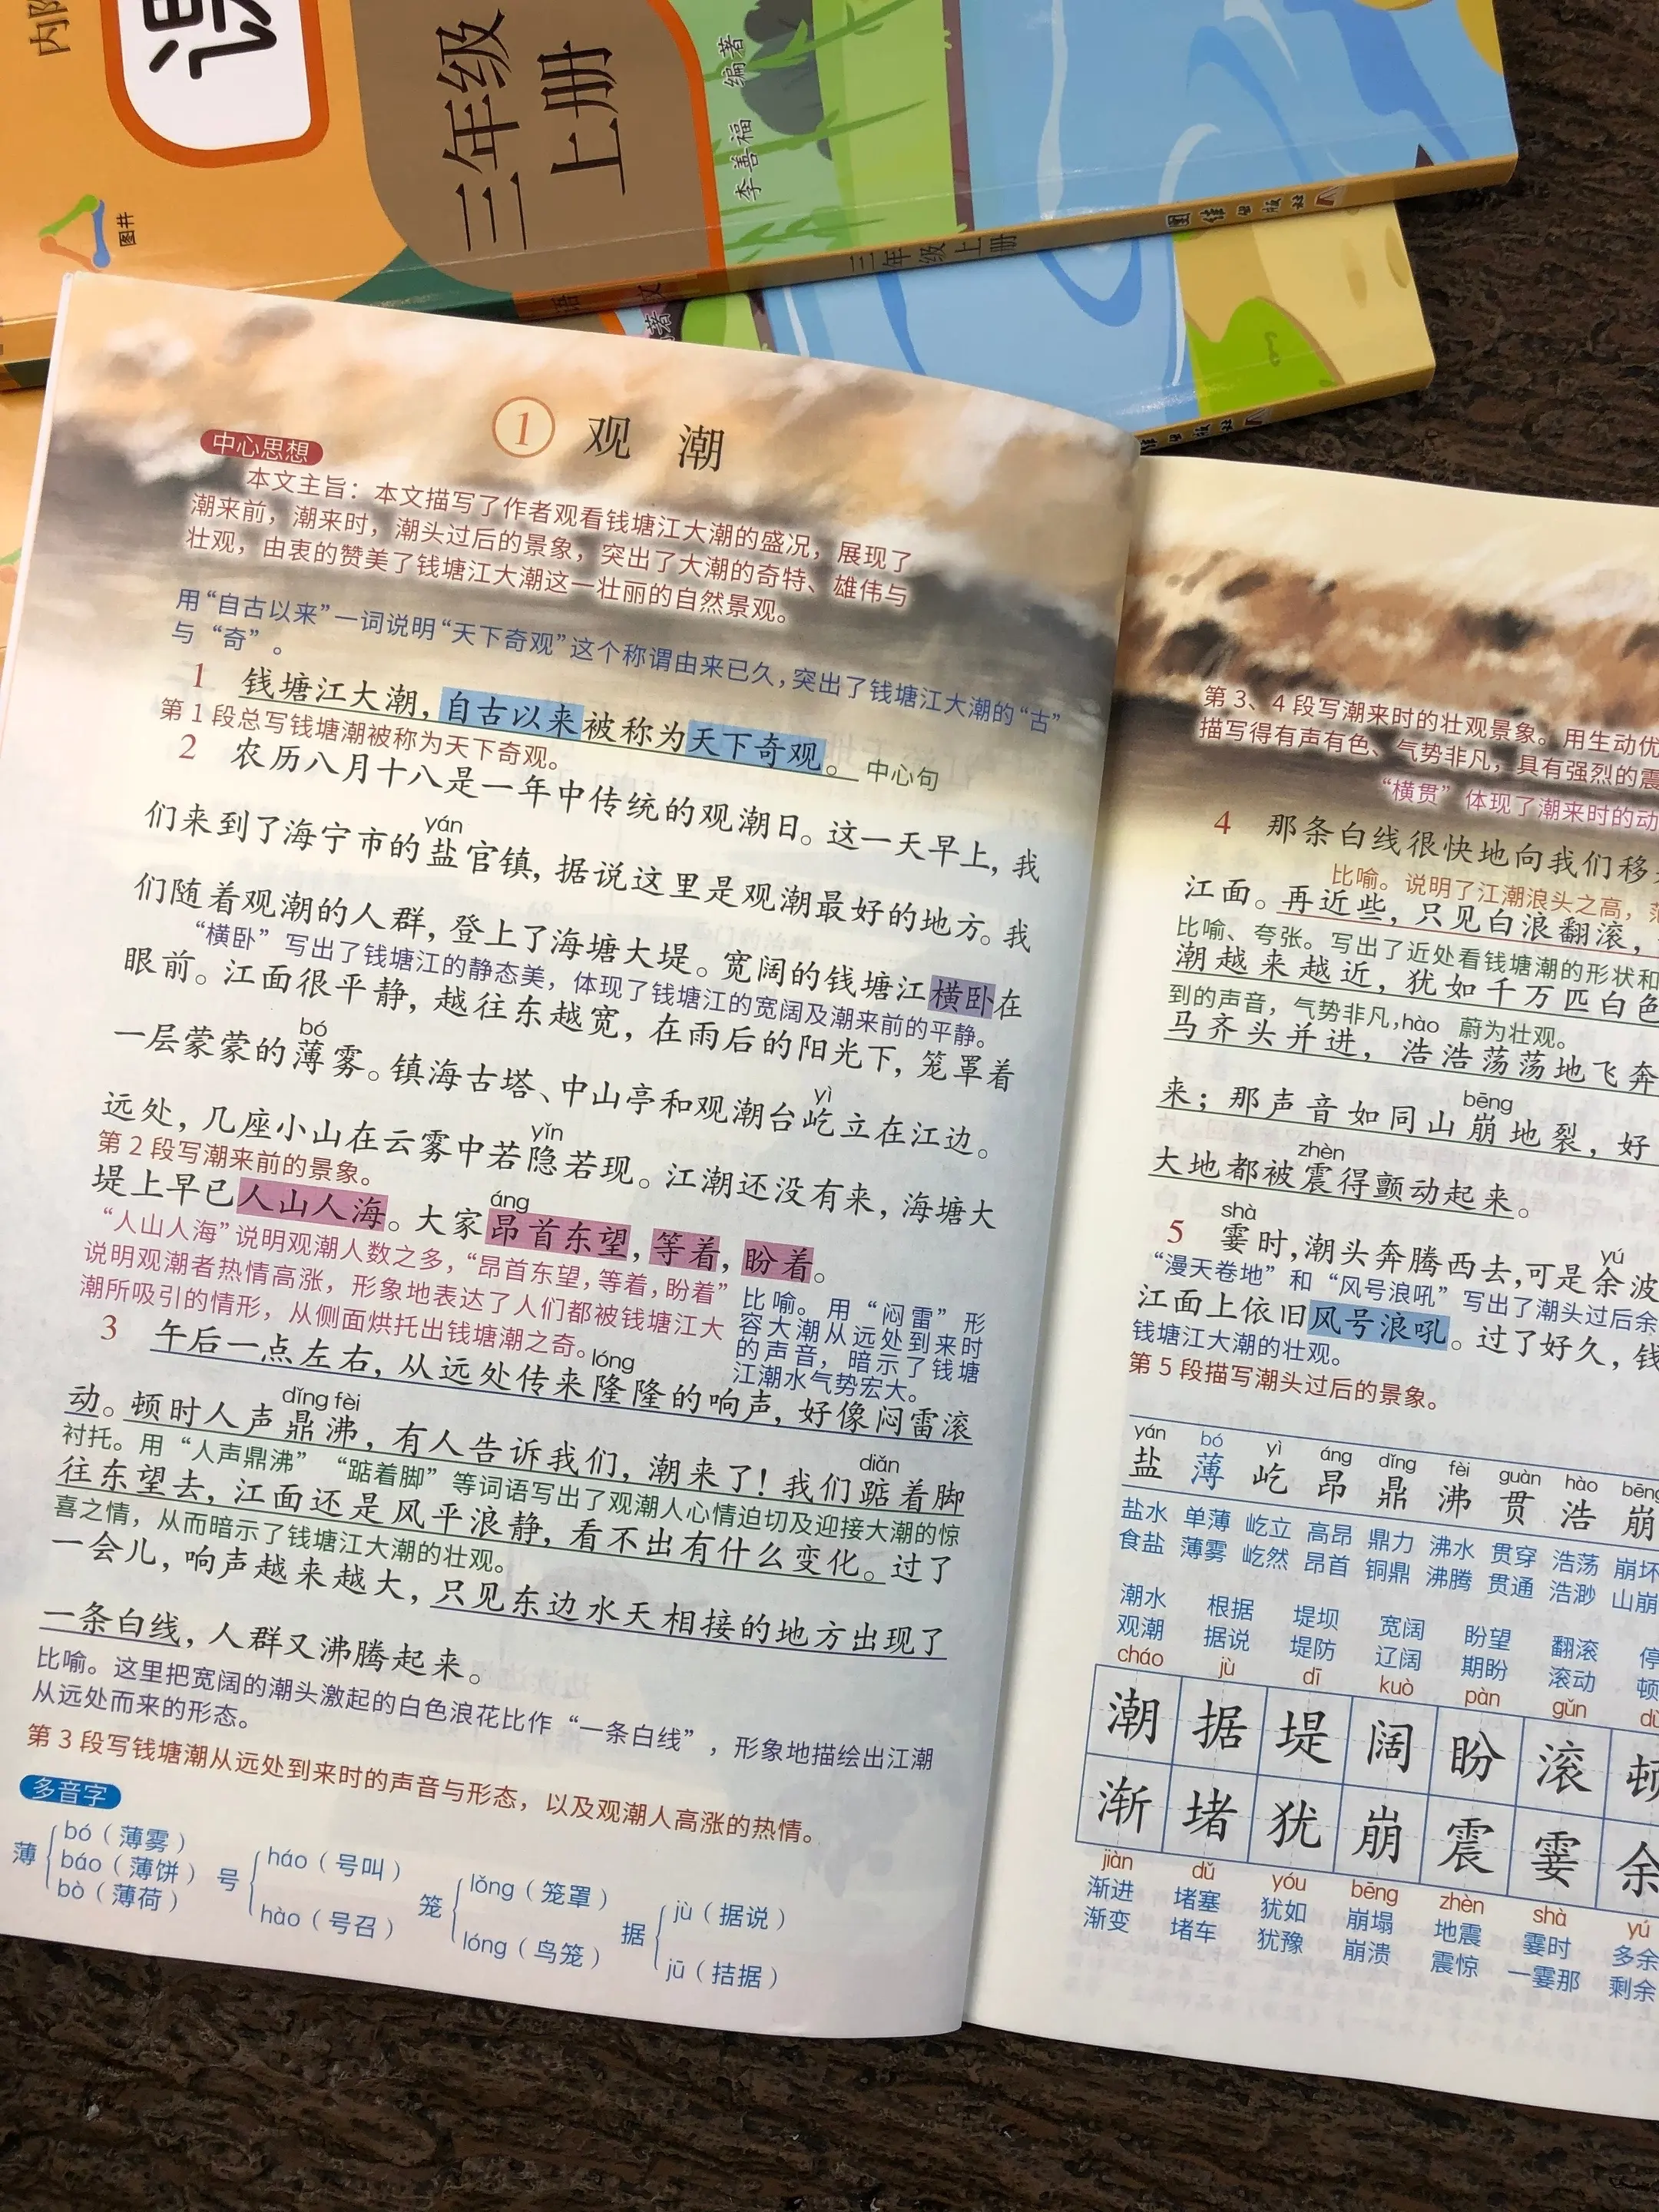 三年级
上册
李善福 编著
图井
三年级上册
① 观 潮
中心思想
本文主旨：本文描写了作者观看钱塘江大潮的盛况，展现了
潮来前，潮来时，潮头过后的景象，突出了大潮的奇特、雄伟与
壮观，由衷的赞美了钱塘江大潮这一壮丽的自然景观。
用“自古以来”一词说明“天下奇观”这个称谓由来已久，突出了钱塘江大潮的“古”
与“奇”。
1 钱塘江大潮，自古以来被称为天下奇观。 中心句
第1段总写钱塘潮被称为天下奇观。
2 农历八月十八是一年中传统的观潮日。这一天早上，我
yán
们来到了海宁市的盐官镇，据说这里是观潮最好的地方。我
们随着观潮的人群，登上了海塘大堤。宽阔的钱塘江横卧在
“横卧”写出了钱塘江的静态美，体现了钱塘江的宽阔及潮来前的平静。
眼前。江面很平静，越往东越宽，在雨后的阳光下，笼罩着
bó
一层蒙蒙的薄雾。镇海古塔、中山亭和观潮台屹立在江边。
yì
远处，几座小山在云雾中若隐若现。江潮还没有来，海塘大
yǐn
第2段写潮来前的景象。
堤上早已人山人海。大家昂首东望，等着，盼着。
áng
“人山人海”说明观潮人数之多，“昂首东望，等着，盼着”
说明观潮者热情高涨，形象地表达了人们都被钱塘江大
潮所吸引的情形，从侧面烘托出钱塘潮之奇。
比喻。用“闷雷”形
容大潮从远处到来时
的声音，暗示了钱塘
江潮水气势宏大。
3 午后一点左右，从远处传来隆隆的响声，好像闷雷滚
lóng
dǐng fèi
动。顿时人声鼎沸，有人告诉我们，潮来了！我们踮着脚
diǎn
衬托。用“人声鼎沸”“踮着脚”等词语写出了观潮人心情迫切及迎接大潮的惊
往东望去，江面还是风平浪静，看不出有什么变化。过了
喜之情，从而暗示了钱塘江大潮的壮观。
一会儿，响声越来越大，只见东边水天相接的地方出现了
一条白线，人群又沸腾起来。
比喻。这里把宽阔的潮头激起的白色浪花比作“一条白线”，形象地描绘出江潮
从远处而来的形态。
第3段写钱塘潮从远处到来时的声音与形态，以及观潮人高涨的热情。
多音字
薄 bó（薄雾） báo（薄饼） bò（薄荷）
号 háo（号叫） hào（号召）
笼 lǒng（笼罩） lóng（鸟笼）
据 jù（据说） jū（拮据）
第3、4段写潮来时的壮观景象。用生动优
描写得有声有色、气势非凡，具有强烈的震
“横贯”体现了潮来时的动
4 那条白线很快地向我们移
比喻。说明了江潮浪头之高，
江面。再近些，只见白浪翻滚，
比喻、夸张。写出了近处看钱塘潮的形状和
潮越来越近，犹如千万匹白色
到的声音，气势非凡，蔚为壮观。
hào
马齐头并进，浩浩荡荡地飞奔
bēng
来；那声音如同山崩地裂，好
zhèn
大地都被震得颤动起来。
shà
5 霎时，潮头奔腾西去，可是余波
yú
“漫天卷地”和“风号浪吼”写出了潮头过后余
江面上依旧风号浪吼。过了好久，钱
钱塘江大潮的壮观。
第5段描写潮头过后的景象。
yán bó yì áng dǐng fèi guàn hào bēng
盐 薄 屹 昂 鼎 沸 贯 浩 崩
盐水 单薄 屹立 高昂 鼎力 沸水 贯穿 浩荡 崩坏
食盐 薄雾 屹然 昂首 铜鼎 沸腾 贯通 浩渺 山崩
潮水 根据 堤坝 宽阔 盼望 翻滚 停
观潮 据说 堤防 辽阔 期盼 滚动 顿
cháo jù dī kuò pàn gǔn
潮 据 堤 阔 盼 滚 顿
渐 堵 犹 崩 震 霎 余
jiàn dǔ yóu bēng zhèn shà yú
渐进 堵塞 犹如 崩塌 地震 霎时 多余
渐变 堵车 犹豫 崩溃 震惊 一霎那 剩余